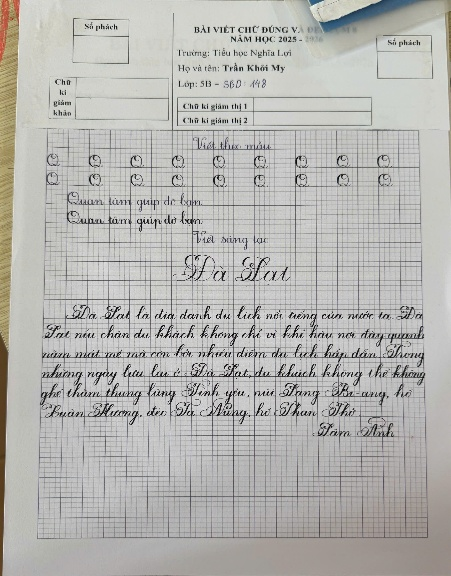 Số phách
BÀI VIẾT CHỮ ĐÚNG VÀ ĐẸP
NĂM HỌC 2025 - 2026
Số phách
Trường: Tiểu học Nghĩa Lợi
Họ và tên: Trần Khởi My
Lớp: 5B - SBD: 148
Chữ
kí
giám
khảo
Chữ kí giám thị 1
Chữ kí giám thị 2
Viết theo mẫu
Q Q Q Q Q Q Q Q Q
Q Q Q Q Q Q Q Q Q
Quan tâm giúp đỡ bạn
Quan tâm giúp đỡ bạn
Viết sáng tạo
Đà Lạt
Đà Lạt là địa danh du lịch nổi tiếng của nước ta. Đà
Lạt níu chân du khách không chỉ vì khí hậu nơi đây quanh
năm mát mẻ mà còn bởi nhiều điểm du lịch hấp dẫn. Trong
những ngày lưu lại ở Đà Lạt, du khách không thể không
ghé thăm thung lũng Tình yêu, núi Lang Bi-ang, hồ
Xuân Hương, đèo Tà Nung, hồ Than Thở.
Tâm Anh